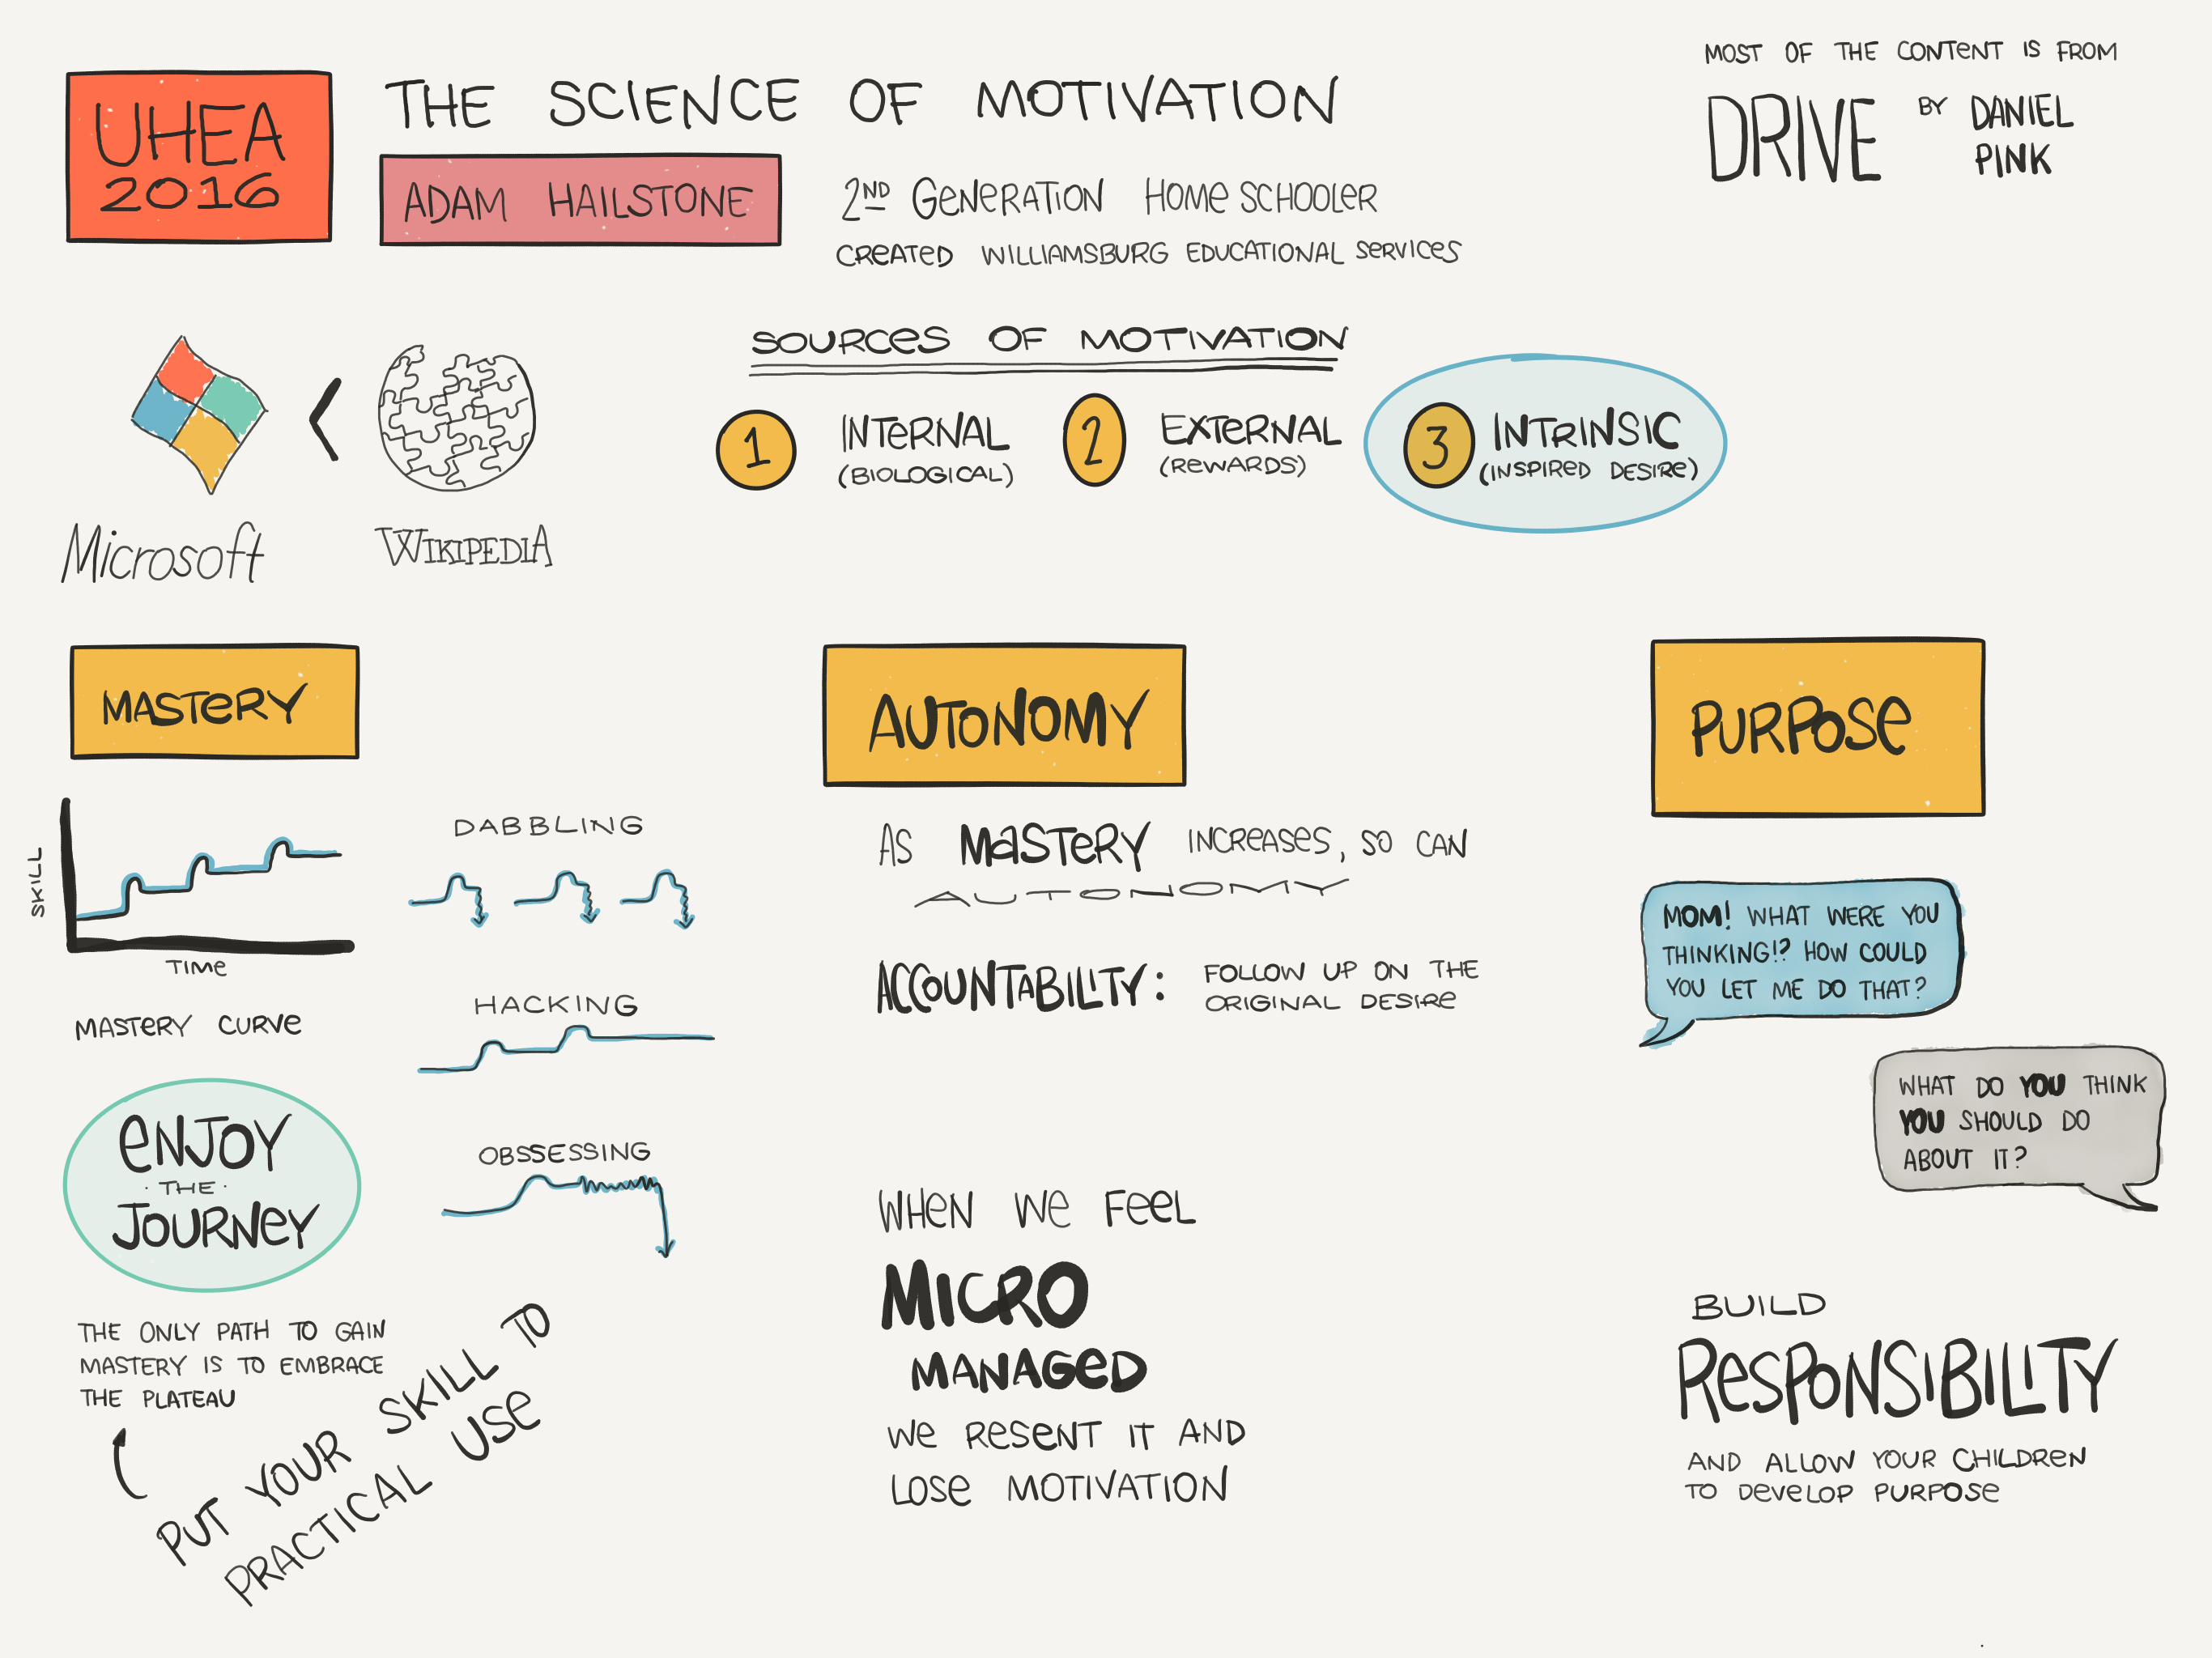 UHEA
2016
THE SCIENCE OF MOTIVATION
ADAM HAILSTONE
2ND GENERATION HOME SCHOOLER
CREATED WILLIAMSBURG EDUCATIONAL SERVICES
MOST OF THE CONTENT IS FROM
DRIVE BY DANIEL
PINK
Microsoft
<
WIKIPEDIA
SOURCES OF MOTIVATION
1 INTERNAL
(BIOLOGICAL)
2 EXTERNAL
(REWARDS)
3 INTRINSIC
(INSPIRED DESIRE)
MASTERY
SKILL
TIME
MASTERY CURVE
DABBLING
HACKING
OBSSESSING
ENJOY
· THE ·
JOURNEY
THE ONLY PATH TO GAIN
MASTERY IS TO EMBRACE
THE PLATEAU
PUT YOUR SKILL TO
PRACTICAL USE
AUTONOMY
AS MASTERY INCREASES, SO CAN
AUTONOMY
ACCOUNTABILITY: FOLLOW UP ON THE
ORIGINAL DESIRE
WHEN WE FEEL
MICRO
MANAGED
WE RESENT IT AND
LOSE MOTIVATION
PURPOSE
MOM! WHAT WERE YOU
THINKING!? HOW COULD
YOU LET ME DO THAT?
WHAT DO YOU THINK
YOU SHOULD DO
ABOUT IT?
BUILD
RESPONSIBILITY
AND ALLOW YOUR CHILDREN
TO DEVELOP PURPOSE